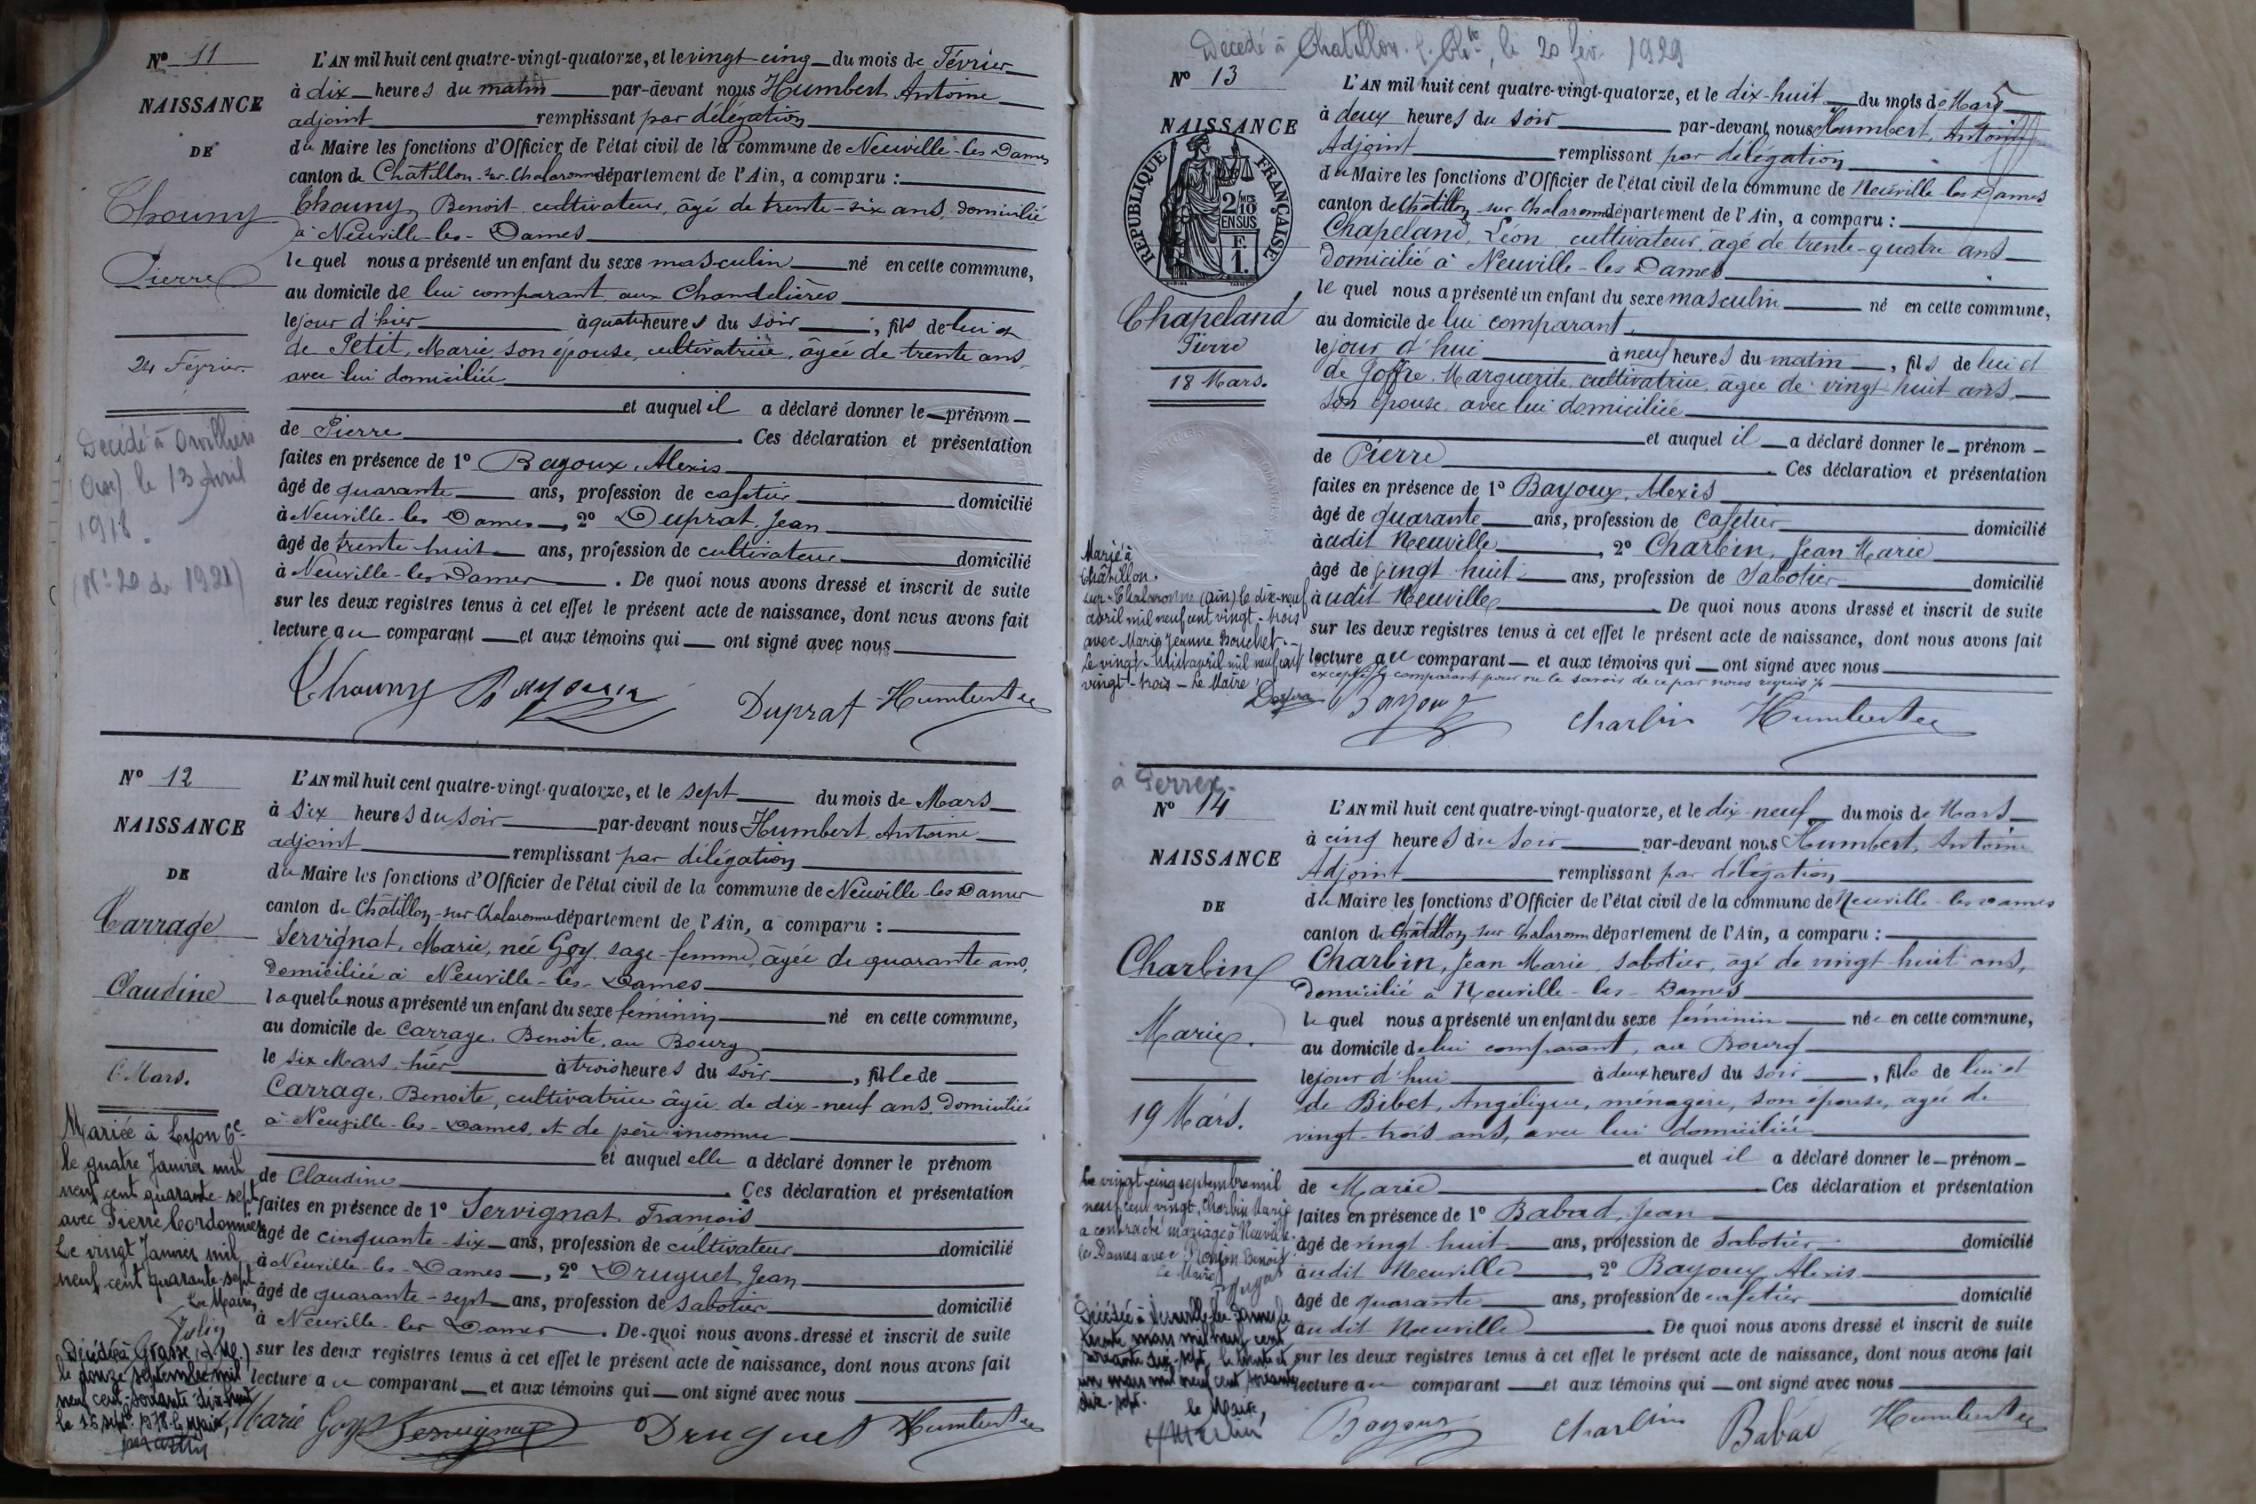 N° 11
NAISSANCE
DE
Chouny
Pierre
24 Février
Décédé à Orvillers
(Oise) le 13 Avril
1918.
(N° 20 de 1921)
L'AN mil huit cent quatre-vingt-quatorze, et le vingt-cinq du mois de Février
à dix heures du matin par-devant nous Humbert Antoine
adjoint remplissant par délégation
du Maire les fonctions d'Officier de l'état civil de la commune de Neuville-les-Dames
canton de Châtillon-sur-Chalaronne département de l'Ain, a comparu :
Chouny, Benoit, cultivateur, âgé de trente-six ans, domicilié
à Neuville-les-Dames
le quel nous a présenté un enfant du sexe masculin né en cette commune,
au domicile de lui comparant aux Chandelières
le jour d'hier à quatre heures du soir, fils de lui et
de Petit, Marie, son épouse, cultivatrice, âgée de trente ans,
avec lui domiciliée
et auquel il a déclaré donner le prénom
de Pierre. Ces déclaration et présentation
faites en présence de 1° Bayoux, Alexis
âgé de quarante ans, profession de cafetier domicilié
à Neuville-les-Dames, 2° Duprat, Jean
âgé de trente-huit ans, profession de cultivateur domicilié
à Neuville-les-Dames. De quoi nous avons dressé et inscrit de suite
sur les deux registres tenus à cet effet le présent acte de naissance, dont nous avons fait
lecture au comparant et aux témoins qui ont signé avec nous
Chouny Bayoux Duprat Humbert A
N° 12
NAISSANCE
DE
Carrage
Claudine
6 Mars.
Mariée à Lyon 6e
le quatre Janvier mil
neuf cent quarante-sept
avec Pierre Cordonnier
Le vingt Janvier mil
neuf cent quarante-sept
Le Maire,
Décédée à Grasse (A. M.)
le douze septembre mil
neuf cent soixante dix huit
le 15 sept 1978 le Maire,
L'AN mil huit cent quatre-vingt-quatorze, et le sept du mois de Mars
à six heures du soir par-devant nous Humbert, Antoine
adjoint remplissant par délégation
du Maire les fonctions d'Officier de l'état civil de la commune de Neuville-les-Dames
canton de Châtillon-sur-Chalaronne département de l'Ain, a comparu :
Servignat, Marie, née Goy, sage-femme, âgée de quarante ans,
domiciliée à Neuville-les-Dames
laquelle nous a présenté un enfant du sexe féminin né en cette commune,
au domicile de Carrage, Benoite, au Bourg
le six Mars, hier à trois heures du soir, fille de
Carrage, Benoite, cultivatrice âgée de dix-neuf ans, domiciliée
à Neuville-les-Dames, et de père inconnu
et auquel elle a déclaré donner le prénom
de Claudine. Ces déclaration et présentation
faites en présence de 1° Servignat, François
âgé de cinquante-six ans, profession de cultivateur domicilié
à Neuville-les-Dames, 2° Druguet, Jean
âgé de quarante-sept ans, profession de sabotier domicilié
à Neuville-les-Dames. De quoi nous avons dressé et inscrit de suite
sur les deux registres tenus à cet effet le présent acte de naissance, dont nous avons fait
lecture au comparant et aux témoins qui ont signé avec nous
Marie Goy Servignat Druguet Humbert A
Décédé à Chatillon s. Ch., le 20 fév. 1929
N° 13
NAISSANCE
REPUBLIQUE FRANÇAISE
2/10 EN SUS
F. 1.
Chapeland
Pierre
18 Mars.
Marié à
Châtillon-
sur-Chalaronne (Ain) le dix-neuf
avril mil neuf cent vingt-trois
avec Marie Jeanne Bouchet
le vingt-huit avril mil neuf cent
vingt-trois - Le Maire
L'AN mil huit cent quatre-vingt-quatorze, et le dix-huit du mois de Mars
à deux heures du soir par-devant nous Humbert, Antoine
Adjoint remplissant par délégation
du Maire les fonctions d'Officier de l'état civil de la commune de Neuville-les-Dames
canton de Châtillon-sur-Chalaronne département de l'Ain, a comparu :
Chapeland, Léon, cultivateur, âgé de trente-quatre ans
domicilié à Neuville-les-Dames
le quel nous a présenté un enfant du sexe masculin né en cette commune,
au domicile de lui comparant,
le jour d'hui à neuf heures du matin, fils de lui et
de Joffre, Marguerite, cultivatrice, âgée de vingt huit ans,
son épouse, avec lui domiciliée
et auquel il a déclaré donner le prénom
de Pierre. Ces déclaration et présentation
faites en présence de 1° Bayoux, Alexis
âgé de quarante ans, profession de cafetier domicilié
audit Neuville, 2° Charbin, Jean Marie
âgé de vingt huit ans, profession de Sabotier domicilié
audit Neuville. De quoi nous avons dressé et inscrit de suite
sur les deux registres tenus à cet effet le présent acte de naissance, dont nous avons fait
lecture au comparant et aux témoins qui ont signé avec nous
excepté le comparant pour ne le savoir de ce par nous requis
Bayoux Charbin Humbert A
à Perrex
N° 14
NAISSANCE
DE
Charbin
Marie.
19 Mars.
Le vingt-cinq septembre mil
neuf cent vingt, Charbin Marie
a contracté mariage à Neuville-
les-Dames avec Benoit
Le Maire
Décédée à Neuville-les-Dames le
trente mars mil neuf cent
soixante dix-sept, le trente et
un mars mil neuf cent soixante
dix-sept.
le Maire,
L'AN mil huit cent quatre-vingt-quatorze, et le dix-neuf du mois de Mars
à cinq heures du soir par-devant nous Humbert, Antoine
Adjoint remplissant par délégation
du Maire les fonctions d'Officier de l'état civil de la commune de Neuville-les-Dames
canton de Châtillon-sur-Chalaronne département de l'Ain, a comparu :
Charbin, Jean Marie, sabotier, âgé de vingt huit ans,
domicilié à Neuville-les-Dames
le quel nous a présenté un enfant du sexe féminin née en cette commune,
au domicile de lui comparant, au Bourg
le jour d'hui à deux heures du soir, fille de lui et
de Bibet, Angélique, ménagère, son épouse, âgée de
vingt-trois ans, avec lui domiciliée
et auquel il a déclaré donner le prénom
de Marie Ces déclaration et présentation
faites en présence de 1° Babad, Jean
âgé de vingt huit ans, profession de Sabotier domicilié
audit Neuville, 2° Bayoux, Alexis
âgé de quarante ans, profession de cafetier domicilié
audit Neuville. De quoi nous avons dressé et inscrit de suite
sur les deux registres tenus à cet effet le présent acte de naissance, dont nous avons fait
lecture au comparant et aux témoins qui ont signé avec nous
Bayoux Charbin Babad Humbert A